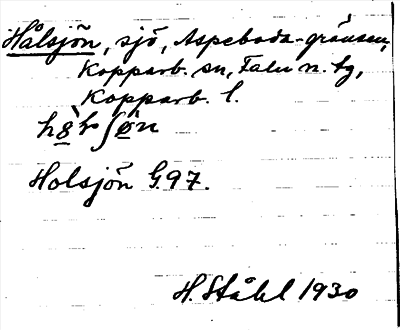 Hålsjön, sjö, Aspeboda-gränsen,
Kopparb. sn, Falu n. tg,
Kopparb. l.
Holsjön G.97.
H. Ståhl 1930